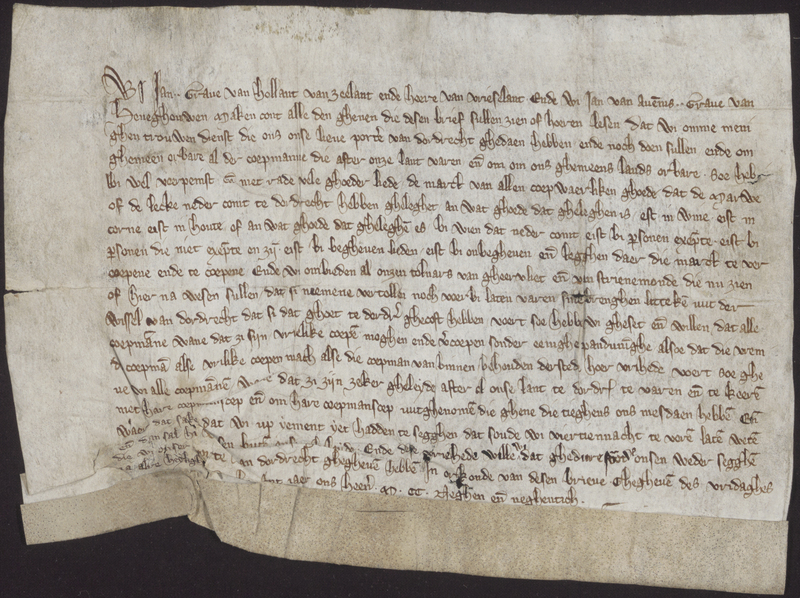 Wi Jan Grave van Hollant van Zeelant ende heere van Vrieselant Ende wi Jan van Avens Grave van
heneghouwen Maken cont alle den ghenen die desen brief sullen zien of horen lesen dat wi omme meni
ghen trouwen dienst die ons onse lieve port's van dordrecht ghedaen hebben ende noch doen sullen ende om
ghemeen orbare al der coepmanne die after onze lant varen en om ons ghemeens lands orbare soe heb
wi wel voerpenst en met rade vele ghoeder liede de marct van allen coepwaerliken ghoede dat de Marwe
of de lecke neder comt te dordrecht hebben gheleghet an wat ghoede dat gheleghen is eist in wine eist in
corne eist in houte of an wat ghoede dat gheleghe es bi wien dat neder comt eist bi psonen exepte eist bi
psonen die niet exepte en zijn eist bi begheven lieden eist bi onbegheven en legghen daer die marct te ver
coepene ende te coepene Ende wi ombieden al onzen tolnars van gheervliet en van strienemonde die nu zien
of hier na wesen sullen dat si neemene vertollen noch voerbi laten varen sine brenghen litteken uut der
wissel van dordrecht dat si dat ghoet te dordr' ghecoft hebben voert soe hebb wi gheset en willen dat alle
coepmanne wane dat zi sijn vrilike coepen moghen ende vcoepen sonder eenighe pandinghe alsoe dat die vrem
de coepman alse vrilike coepen mach alse die coepman van binnen behouden der stede hoer vrihede voert soe ghe
ve wi alle coepmanne dat zi zijn zeker gheleide after al onse lant te dordr' te varen en te keren
met hare coep en om hare coepmanscep uutghenomen die ghene die tieghens ons mesdaen hebben En
waer dat sake dat wi up yement yet hadden te segghen dat soude wi viertiennacht te voren laten weten
en dan sal hi Ende dese vriehede willen wi dat ghedure onsen weder segghen
die wi onser van dordrecht ghegheven hebben In orkonde van desen brieve Ghegheven des vridaghes
jaer ons heen M CC Neghen en neghentich